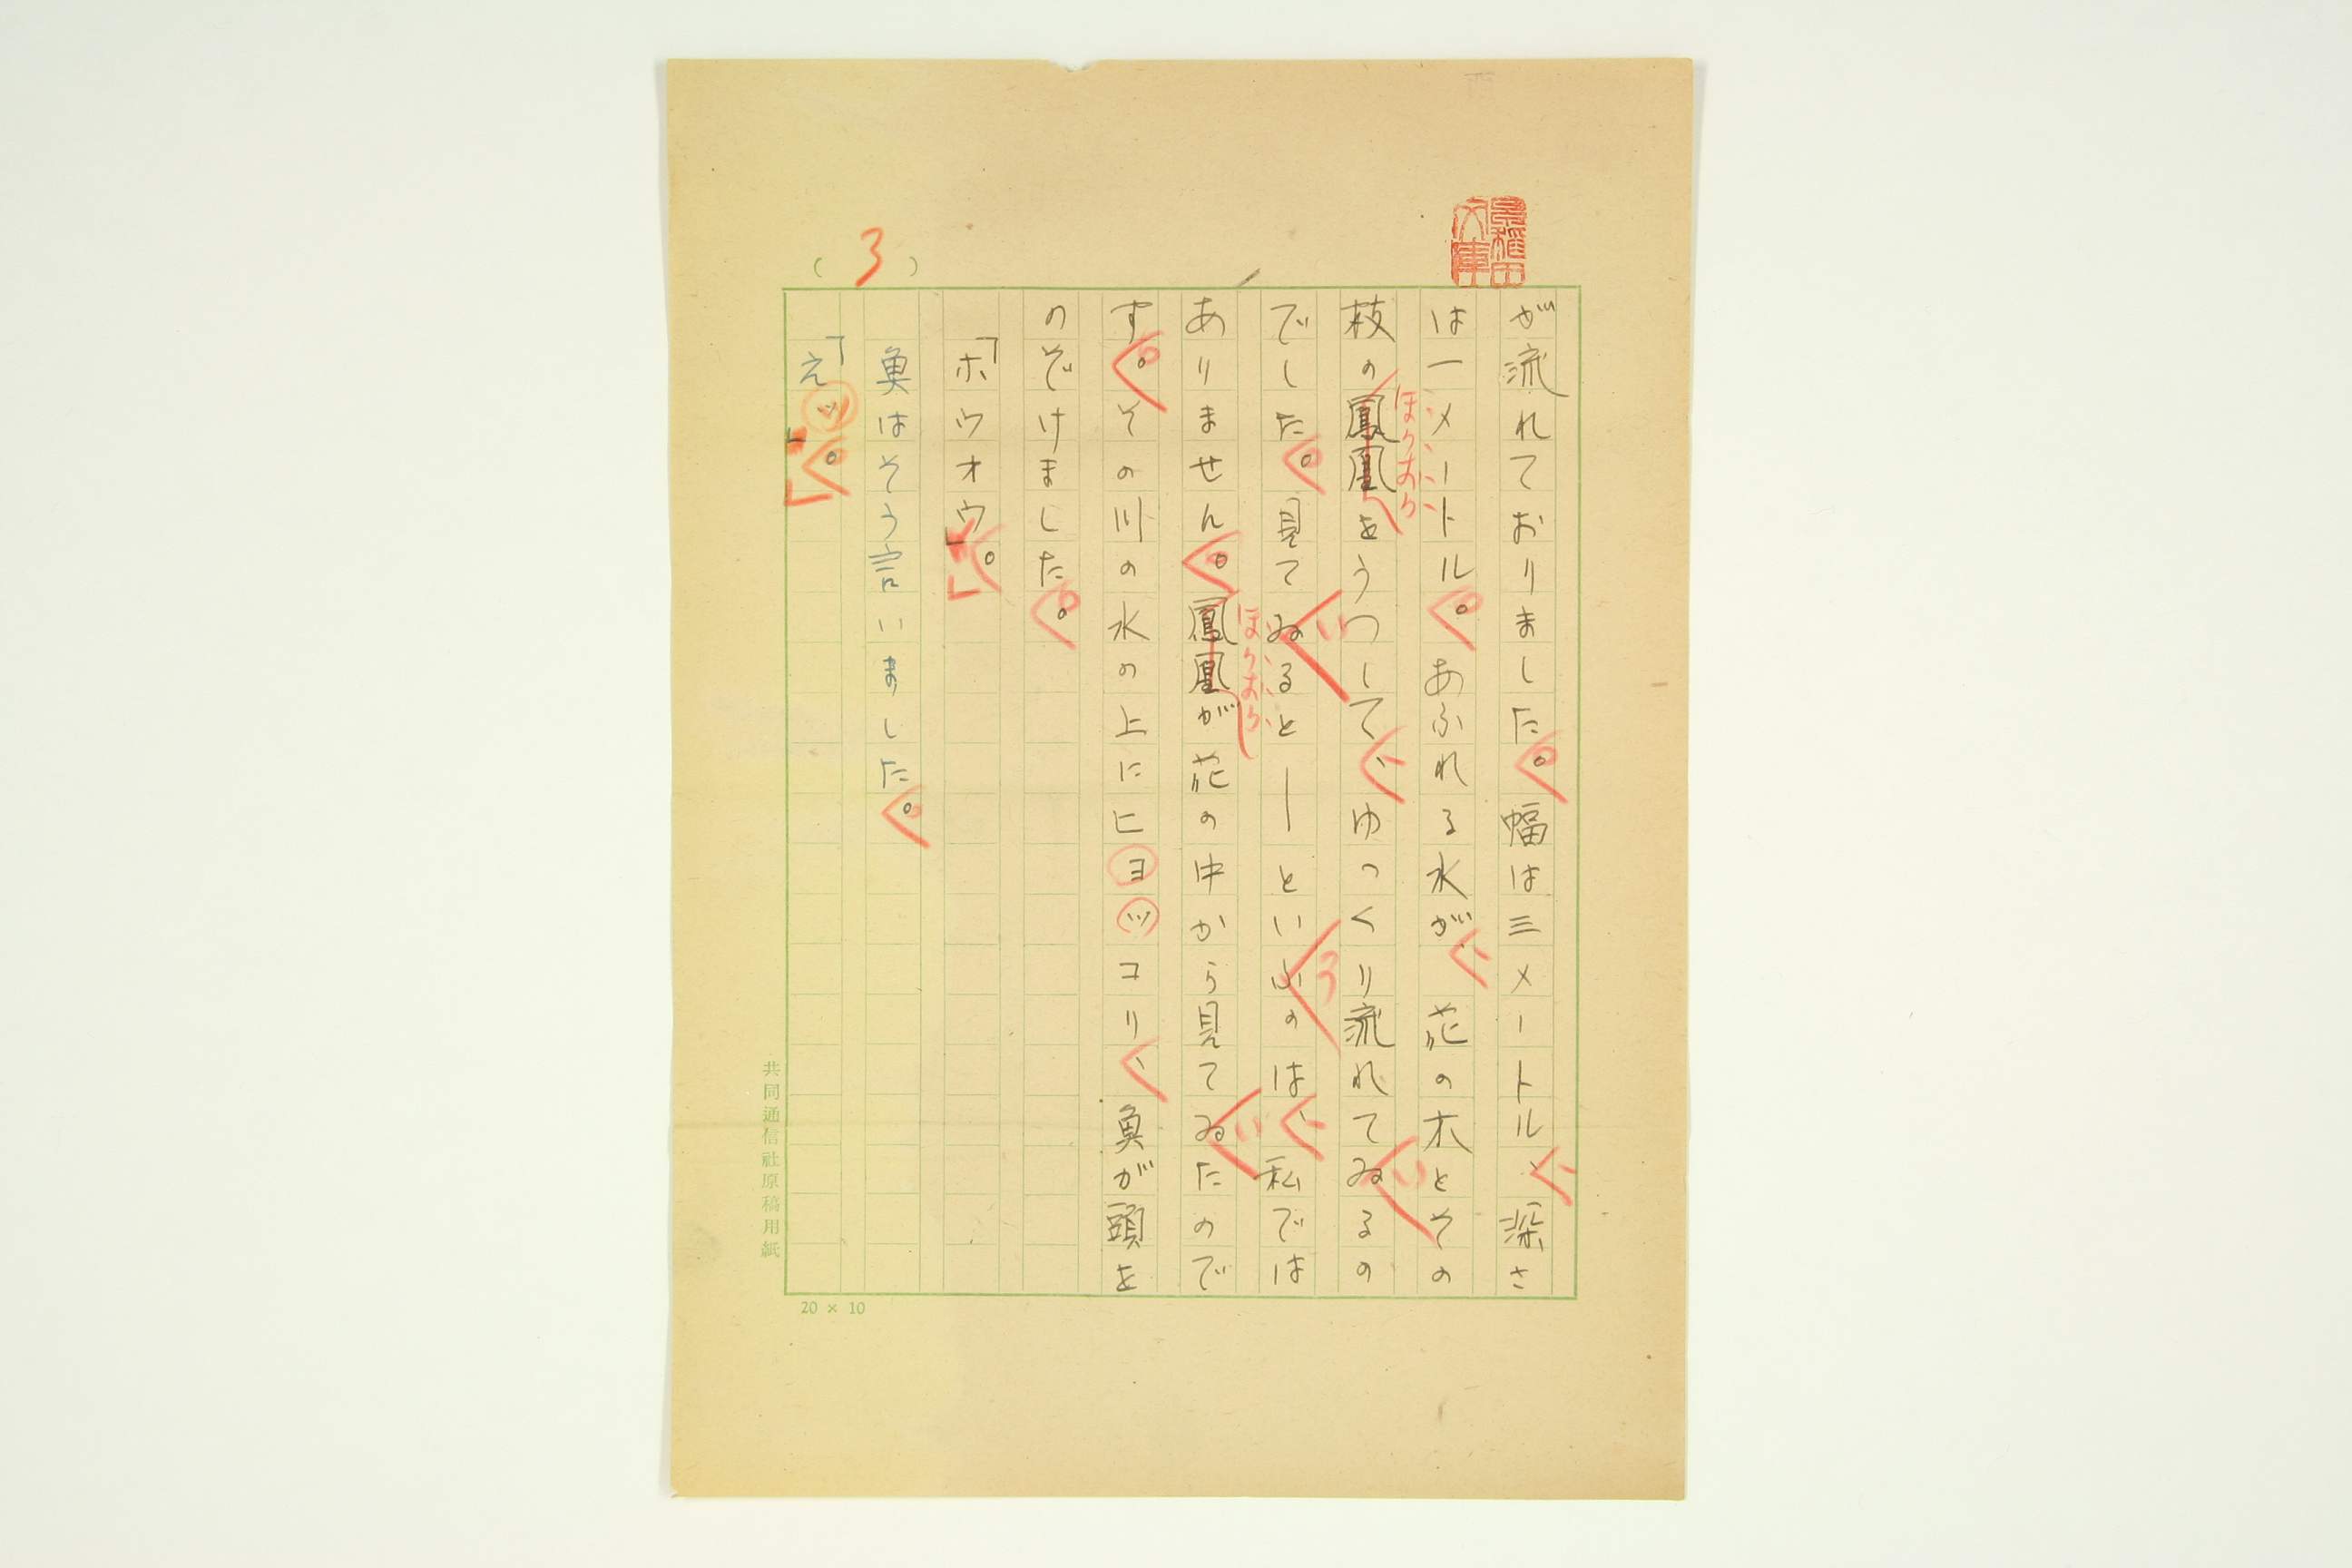 早稲田
文庫
(3)
が流れておりました。幅は三メートル、深さ
は一メートル。あふれる水が、花の木とその
枝の鳳凰をうつして、ゆつくり流れてゐるの
ほうおう
い
でした。見てゐると―というのは、私では
い
う
ありません。鳳凰が花の中から見てゐたので
ほうおう
い
す。その川の水の上にヒヨツコリ、魚が頭を
のぞけました。
「ホウオウ」。
魚はそう言いました。
「えツ」。
共同通信社原稿用紙
20 × 10